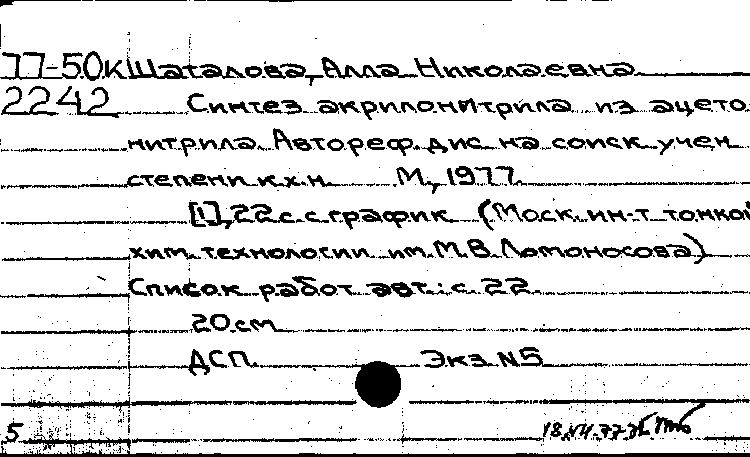 77-50к Шаталова, Алла Николаевна
2242 Синтез акрилонитрила из ацето
нитрила. Автореф. дис. на соиск. учен.
степени к.х.н. М., 1977.
[1], 22 с. с график. (Моск. ин-т тонкой
хим. технологии им. М.В. Ломоносова)
Список работ авт.: с. 22.
20 см
ДСП. Экз. N5
5